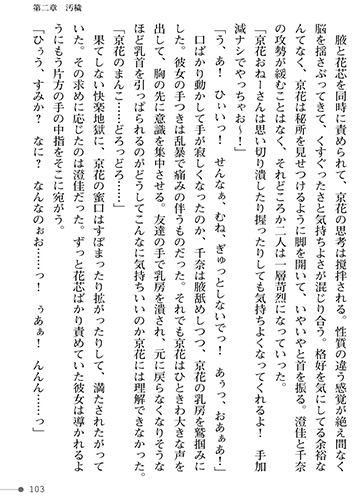 第二章　汚穢
腋と花芯を同時に責められて、京花の思考は撹拌される。性質の違う感覚が絶え間なく
脳を揺さぶってきて、くすぐったさと気持ちよさが混じり合う。格好を気にしてる余裕な
んてなく、京花は秘所を見せつけるように脚を開いて、いやいやと首を振る。澄佳と千奈
の攻勢が緩むことはなく、それどころか二人は一層苛烈になっていった。
「京花おねーさんは思い切り潰したり握ったりしても気持ちよくなってくれるよ！　手加
減ナシでやっちゃお～！」
「う、あ！　ひぃいっ！　せんなぁ、むね、ぎゅっとしないでっ！　あぅっ、おあぁあ！」
口ばかり動かして手が寂しくなったのか、千奈は腋舐めしつつ、京花の乳房を鷲掴みに
した。彼女の手つきは乱暴で痛みの伴うものだった。それでも京花はひときわ大きな声を
出して、胸の先に意識を集中させる。友達の手で乳房を潰され、元に戻らなくなりそうな
ほど乳首を引っぱられるのがどうしてこんなに気持ちいいのか京花には理解できなかった。
「京花のまんこ……どろっどろ……」
果てしない快楽地獄に、京花の蜜口はすぼまったり拡がったりして、満たされたがって
いた。その求めに応じたのは澄佳だった。ずっと花芯ばかり責めていた彼女は導かれるよ
うにもう片方の手の中指をそこに宛がう。
「ひぅう、すみか？　なに？　なんなのぉお……っ！　ぅあぁ！　んんん……っ」
103